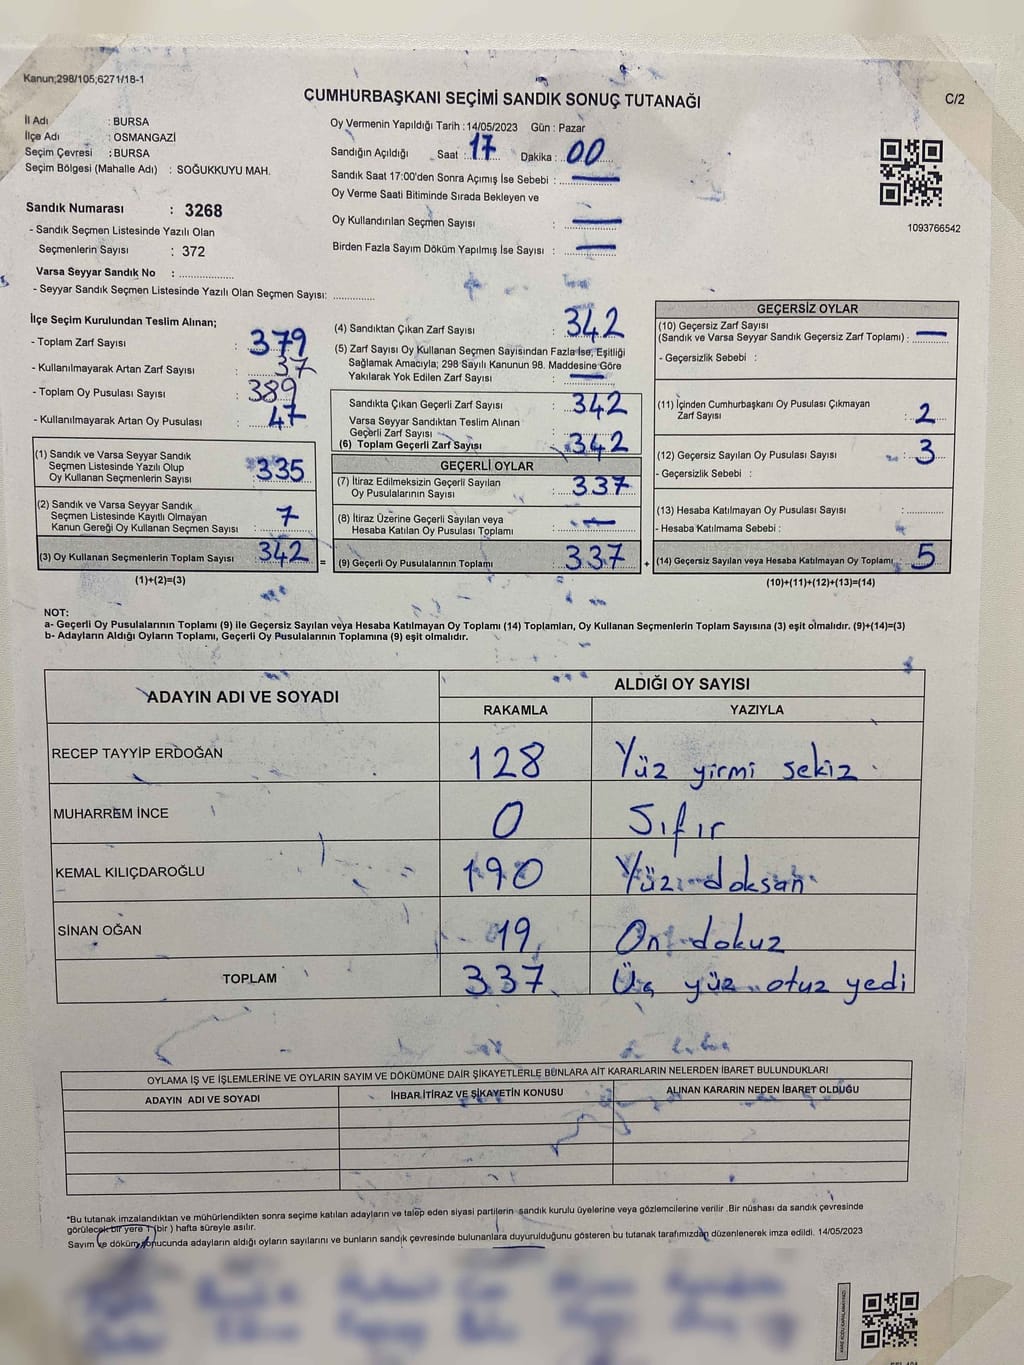 Kanun;298/105;6271/18-1
CUMHURBAŞKANI SEÇİMİ SANDIK SONUÇ TUTANAĞI
C/2
İl Adı : BURSA
İlçe Adı : OSMANGAZİ
Seçim Çevresi : BURSA
Seçim Bölgesi (Mahalle Adı) : SOĞUKKUYU MAH.
Sandık Numarası : 3268
- Sandık Seçmen Listesinde Yazılı Olan
Seçmenlerin Sayısı : 372
Varsa Seyyar Sandık No : ..................
- Seyyar Sandık Seçmen Listesinde Yazılı Olan Seçmen Sayısı: .............
Oy Vermenin Yapıldığı Tarih :14/05/2023 Gün : Pazar
Sandığın Açıldığı Saat : 17 Dakika : 00
Sandık Saat 17:00'den Sonra Açımış İse Sebebi : —
Oy Verme Saati Bitiminde Sırada Bekleyen ve
Oy Kullandırılan Seçmen Sayısı : —
Birden Fazla Sayım Döküm Yapılmış İse Sayısı : —
1093766542
İlçe Seçim Kurulundan Teslim Alınan;
- Toplam Zarf Sayısı : 379
- Kullanılmayarak Artan Zarf Sayısı : 37
- Toplam Oy Pusulası Sayısı : 389
- Kullanılmayarak Artan Oy Pusulası : 47
(1) Sandık ve Varsa Seyyar Sandık
Seçmen Listesinde Yazılı Olup
Oy Kullanan Seçmenlerin Sayısı : 335
(2) Sandık ve Varsa Seyyar Sandık
Seçmen Listesinde Kayıtlı Olmayan
Kanun Gereği Oy Kullanan Seçmen Sayısı : 7
(3) Oy Kullanan Seçmenlerin Toplam Sayısı : 342 =
(1)+(2)=(3)
(4) Sandıktan Çıkan Zarf Sayısı : 342
(5) Zarf Sayısı Oy Kullanan Seçmen Sayısından Fazla İse, Eşitliği
Sağlamak Amacıyla; 298 Sayılı Kanunun 98. Maddesine Göre
Yakılarak Yok Edilen Zarf Sayısı : —
Sandıkta Çıkan Geçerli Zarf Sayısı : 342
Varsa Seyyar Sandıktan Teslim Alınan
Geçerli Zarf Sayısı :
(6) Toplam Geçerli Zarf Sayısı : 342
GEÇERLİ OYLAR
(7) İtiraz Edilmeksizin Geçerli Sayılan
Oy Pusulalarının Sayısı : 337
(8) İtiraz Üzerine Geçerli Sayılan veya
Hesaba Katılan Oy Pusulası Toplamı : —
(9) Geçerli Oy Pusulalarının Toplamı : 337 +
GEÇERSİZ OYLAR
(10) Geçersiz Zarf Sayısı
(Sandık ve Varsa Seyyar Sandık Geçersiz Zarf Toplamı) : —
- Geçersizlik Sebebi :
(11) İçinden Cumhurbaşkanı Oy Pusulası Çıkmayan
Zarf Sayısı : 2
(12) Geçersiz Sayılan Oy Pusulası Sayısı : 3
- Geçersizlik Sebebi :
(13) Hesaba Katılmayan Oy Pusulası Sayısı : ..........
- Hesaba Katılmama Sebebi :
(14) Geçersiz Sayılan veya Hesaba Katılmayan Oy Toplamı : 5
(10)+(11)+(12)+(13)=(14)
NOT:
a- Geçerli Oy Pusulalarının Toplamı (9) ile Geçersiz Sayılan veya Hesaba Katılmayan Oy Toplamı (14) Toplamları, Oy Kullanan Seçmenlerin Toplam Sayısına (3) eşit olmalıdır. (9)+(14)=(3)
b- Adayların Aldığı Oyların Toplamı, Geçerli Oy Pusulalarının Toplamına (9) eşit olmalıdır.
ADAYIN ADI VE SOYADI
ALDIĞI OY SAYISI
RAKAMLA YAZIYLA
RECEP TAYYİP ERDOĞAN 128 Yüz yirmi sekiz
MUHARREM İNCE 0 Sıfır
KEMAL KILIÇDAROĞLU 190 Yüz doksan
SİNAN OĞAN 19 On dokuz
TOPLAM 337 Üç yüz otuz yedi
OYLAMA İŞ VE İŞLEMLERİNE VE OYLARIN SAYIM VE DÖKÜMÜNE DAİR ŞİKAYETLERLE BUNLARA AİT KARARLARIN NELERDEN İBARET BULUNDUKLARI
ADAYIN ADI VE SOYADI İHBAR İTİRAZ VE ŞİKAYETİN KONUSU ALINAN KARARIN NEDEN İBARET OLDUĞU
*Bu tutanak imzalandıktan ve mühürlendikten sonra seçime katılan adayların ve talep eden siyasi partilerin sandık kurulu üyelerine veya gözlemcilerine verilir .Bir nüshası da sandık çevresinde
görülecek bir yere 1 (bir ) hafta süreyle asılır.
Sayım ve döküm sonucunda adayların aldığı oyların sayılarını ve bunların sandık çevresinde bulunanlara duyurulduğunu gösteren bu tutanak tarafımızdan düzenlenerek imza edildi. 14/05/2023